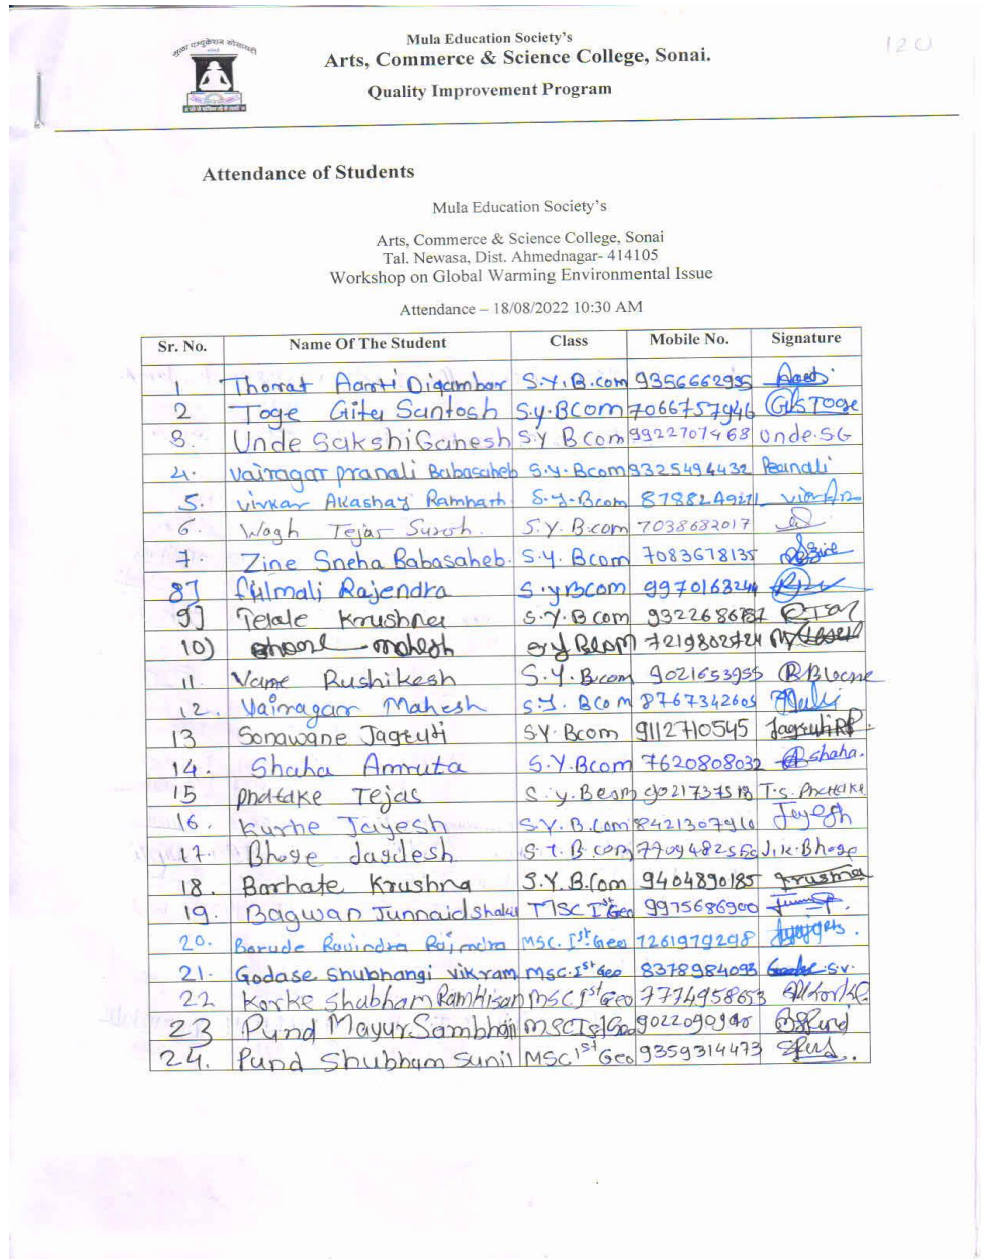 Mula Education Society's
Arts, Commerce & Science College, Sonai.
120
Quality Improvement Program
Attendance of Students
Mula Education Society's
Arts, Commerce & Science College, Sonai
Tal. Newasa, Dist. Ahmednagar- 414105
Workshop on Global Warming Environmental Issue
Attendance – 18/08/2022 10:30 AM
Sr. No. Name Of The Student Class Mobile No. Signature
1 Thorat Aarti Digambar S.Y.B.com 9356662935
2 Toge Gita Santosh S.y.BCom 7066757946 GS Toge
3. Unde Sakshi Ganesh S.Y B Com 9922707468 Unde.SG
4. Vairagar pranali Babasaheb S.Y.Bcom 9325494432 Pranali
5. vivkar Akashay Ramnath S.Y.Bcom
6. Wagh Tejas Suresh. S.Y. B.com 7038682017
7. Zine Sneha Babasaheb. S.Y. Bcom 7083678135
8] fulmali Rajendra S.yBcom 9970163244
9] Telale Krushna S.Y.B com
10) mahesh 7219802724
11 Rushikesh S.Y. B.com 9021653955
12. Vairagar Mahesh S.Y. BCom 8767342605
13 Sonawane Jagruti SY. Bcom 9112710545
14. Shaha Amruta S.Y.Bcom 7620808032 shaha.
15 phatake Tejas S.y. Bcom T.S. Phatake
16. Kurhe Jayesh S.Y.B.Com 8421307910 Jayesh
17. Bhoge Jagdesh B com J.K.Bhoge
18. Barhate Krushna S.Y.B.Com 9404890185 Krushna
19. Bagwan Junnaid MSC Ist Geo 9975686900
20. Barude Ravindra Rajendra MSC. Ist Geo 7261979298
21. Godase Shubhangi vikram MSC.Ist Geo 8378984093 S.V.
22 Korke Shubham MSC Ist Geo 7774958653
23 Pund Mayur Sambhaji 9022090940
24. Pund Shubham Sunil MSC 1st Geo 9359314473